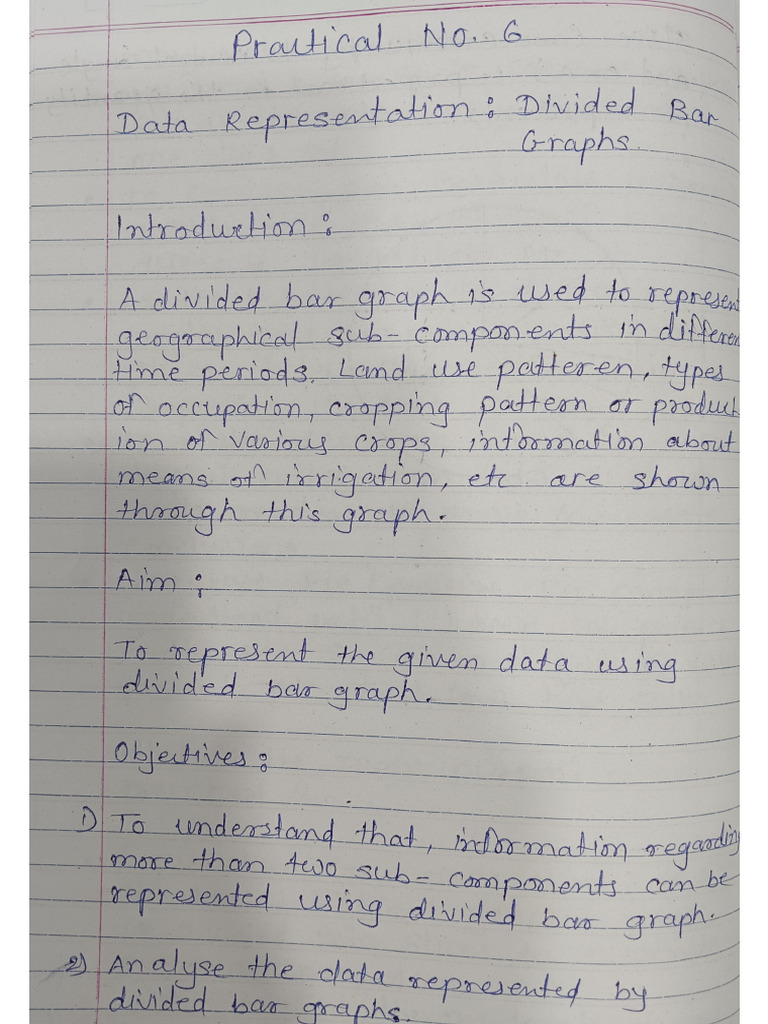 Practical No. 6
Data Representation: Divided Bar
Graphs.
Introduction:
A divided bar graph is used to represent
geographical sub-components in differen
time periods. Land use patteren, types
of occupation, cropping pattern or product
ion of various crops, information about
means of irrigation, etc are shown
through this graph.
Aim:
To represent the given data using
divided bar graph.
Objectives:
1) To understand that, information regarding
more than two sub-components can be
represented using divided bar graph.
2) Analyse the data represented by
divided bar graphs.